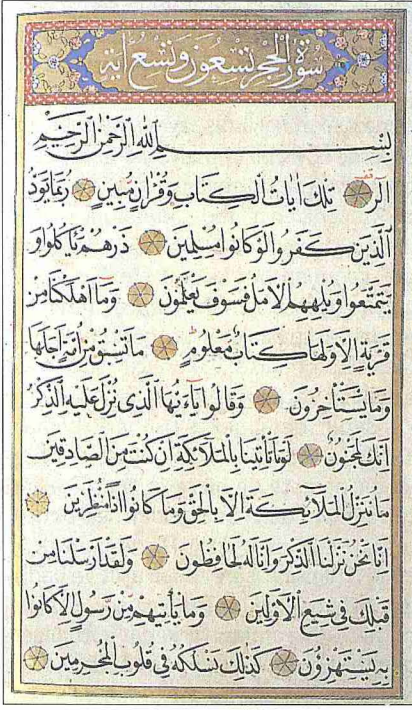 سورة الحجر تسعون وتسع اية
بِسْمِ اللهِ الرَّحْمٰنِ الرَّحِيمِ
الٓرٰ تِلْكَ اٰيَاتُ الْكِتَابِ وَقُرْاٰنٍ مُبِينٍ رُبَمَا يَوَدُّ
الَّذِينَ كَفَرُوا لَوْ كَانُوا مُسْلِمِينَ ذَرْهُمْ يَأْكُلُوا وَ
يَتَمَتَّعُوا وَيُلْهِهِمُ الْاَمَلُ فَسَوْفَ يَعْلَمُونَ وَمَا اَهْلَكْنَا مِنْ
قَرْيَةٍ اِلَّا وَلَهَا كِتَابٌ مَعْلُومٌ مَا تَسْبِقُ مِنْ اُمَّةٍ اَجَلَهَا
وَمَا يَسْتَأْخِرُونَ وَقَالُوا يَٓا اَيُّهَا الَّذِى نُزِّلَ عَلَيْهِ الذِّكْرُ
اِنَّكَ لَمَجْنُونٌ لَوْمَا تَأْتِينَا بِالْمَلٰٓئِكَةِ اِنْ كُنْتَ مِنَ الصَّادِقِينَ
مَا نُنَزِّلُ الْمَلٰٓئِكَةَ اِلَّا بِالْحَقِّ وَمَا كَانُوا اِذًا مُنْظَرِينَ
اِنَّا نَحْنُ نَزَّلْنَا الذِّكْرَ وَاِنَّا لَهُ لَحَافِظُونَ وَلَقَدْ اَرْسَلْنَا مِنْ
قَبْلِكَ فِى شِيَعِ الْاَوَّلِينَ وَمَا يَأْتِيهِمْ مِنْ رَسُولٍ اِلَّا كَانُوا
بِهِ يَسْتَهْزِؤُنَ كَذٰلِكَ نَسْلُكُهُ فِى قُلُوبِ الْمُجْرِمِينَ